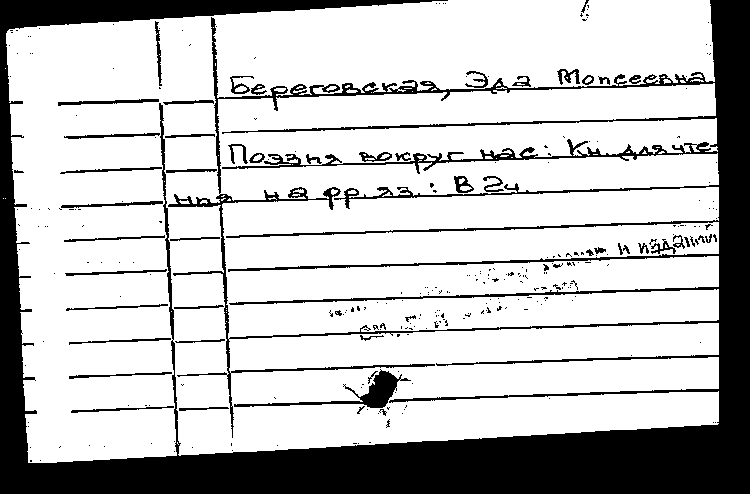 Береговская, Эда Моисеевна
Поэзия вокруг нас: Кн. для чте-
ния на фр. яз.: В 2ч.
и издании